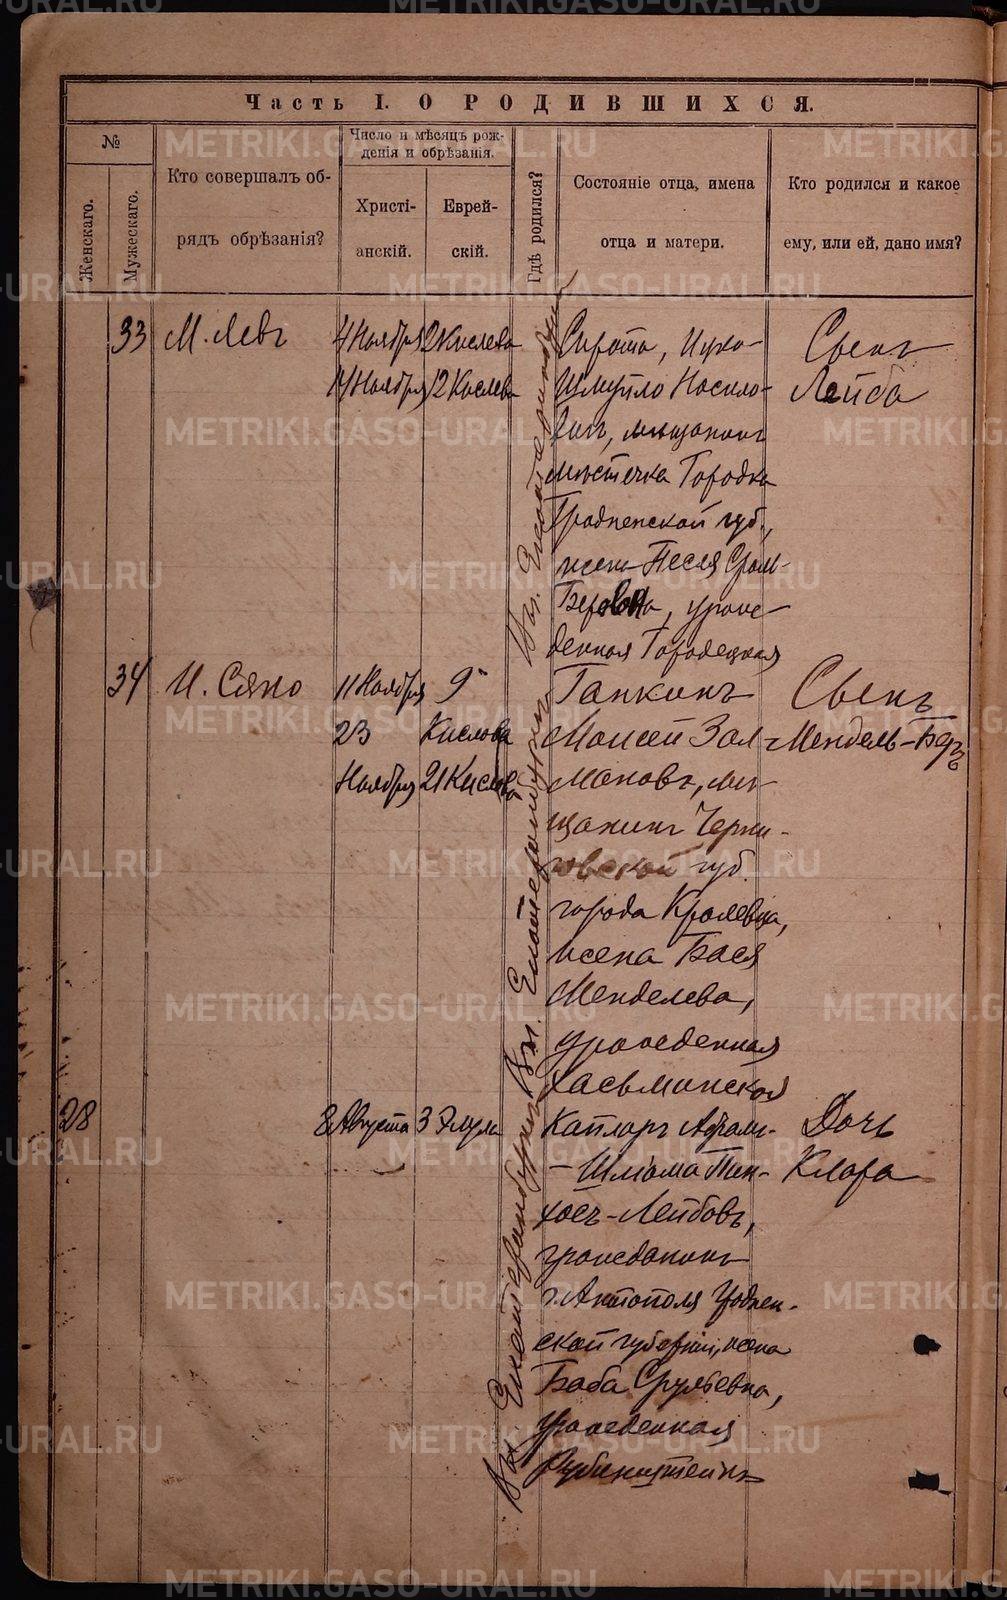 Часть I. О РОДИВШИХСЯ.
№
Женскаго.
Мужескаго.
Кто совершалъ об-
рядъ обрѣзанія?
Число и мѣсяцъ рож-
денія и обрѣзанія.
Христі-
анскій.
Еврей-
скій.
Гдѣ родился?
Состояніе отца, имена
отца и матери.
Кто родился и какое
ему, или ей, дано имя?
33
М. Левъ
4 Ноября
14 Ноября
2 Кислева
12 Кислева
Въ г. Екатеринбургѣ
Сирота,
Шмуйло
мѣщанинъ
мѣстечка Городка
Гродненской губ.,
жена Песля Сроль-
Беровна, урож-
денная Городецкая
Сынъ
Лейба
34
И. Сяно
11 Ноября
23
Ноября
9
Кислова
21 Кислова
Въ г. Екатеринбургѣ
Гапкинъ
Моисей Зал-
мановъ, мѣ-
щанинъ Черни-
говской губ.
города Кролевца,
жена Бася
Менделева,
урожденная
Хасьминская
Сынъ
Мендель-Беръ
28
8 Августа
3 Элула
Въ г. Екатеринбургѣ
Капларъ Абрам-
-Шлёма Пин-
хосъ-Лейбовъ,
гражданинъ
г. Антополя Гроднен-
ской губерніи, жена
Баба Срульевна,
урожденная
Рубинштейнъ
Дочь
Клара
METRIKI.GASO-URAL.RU